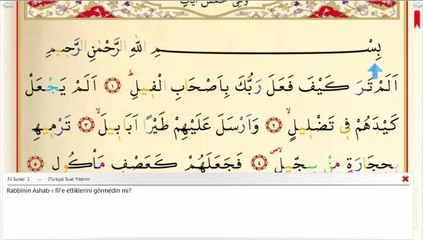 بِسْمِ اللّٰهِ الرَّحْمٰنِ الرَّح۪يمِ
اَلَمْ تَرَ كَيْفَ فَعَلَ رَبُّكَ بِاَصْحَابِ الْف۪يلِۜ ﴿١﴾ اَلَمْ يَجْعَلْ
كَيْدَهُمْ ف۪ي تَضْل۪يلٍۙ ﴿٢﴾ وَاَرْسَلَ عَلَيْهِمْ طَيْرًا اَبَاب۪يلَۙ ﴿٣﴾ تَرْم۪يهِمْ
بِحِجَارَةٍ مِنْ سِجّ۪يلٍۙ ﴿٤﴾ فَجَعَلَهُمْ كَعَصْفٍ مَأْكُولٍ ﴿٥﴾
Fil Suresi 1 — (Türkçe) Suat Yıldırım
Rabbinin Ashab-ı fil'e ettiklerini görmedin mi?